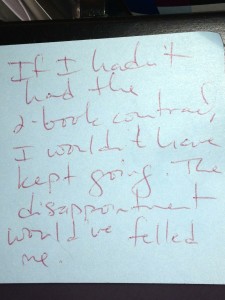 If I hadn't
had the
2-book contract,
I wouldn't have
kept going. The
disappointment
would've felled
me.